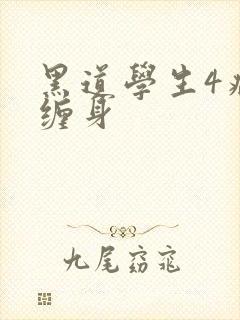 黑道學生4
缠身
九尾窈窕